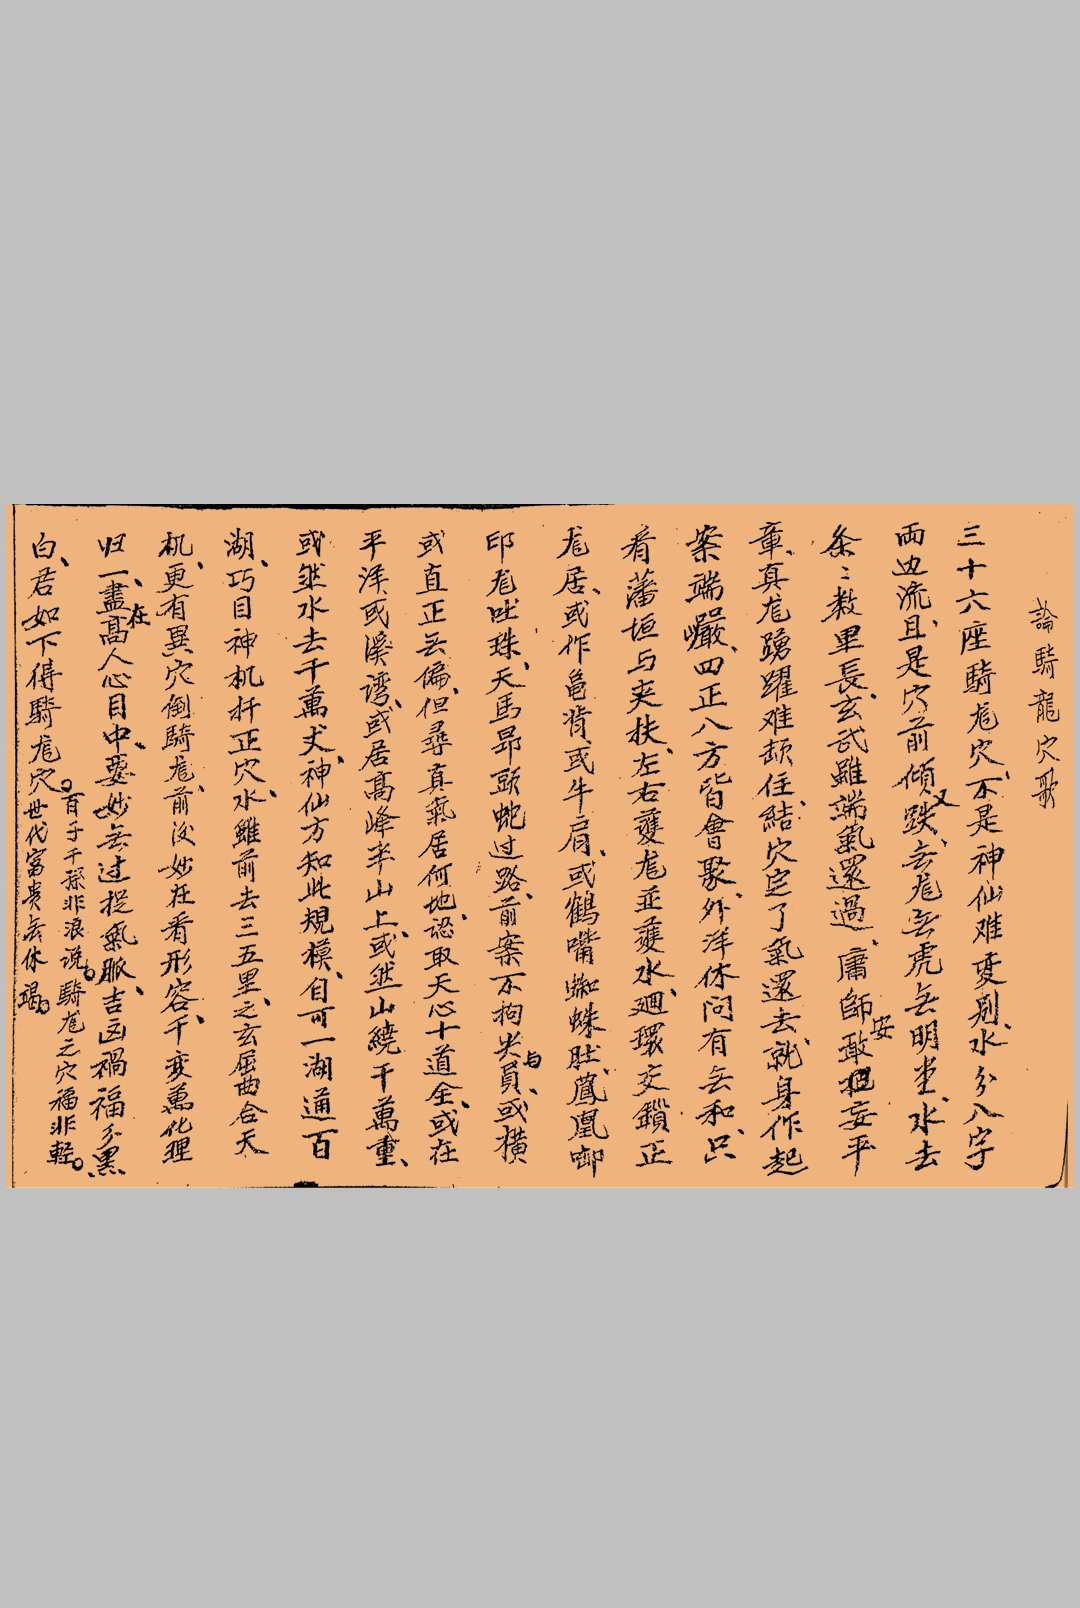 論騎龍穴歌
三十六座騎尨穴、不是神仙难変别、水分八字
両边流、且是穴前傾又跌、无尨无虎无明堂、水去
条〻数里長、玄武雖端氣還過、庸師安敢狚妄平
章、真尨踴躍难頓住、結穴定了氣還去、就身作起
案端嚴、四正八方皆會聚、外洋休問有无和、只
看藩垣与夹扶、左右護尨並護水、廻環交鎖正
尨居、或作亀背或牛肩、或鶴嘴蜘蛛肚、鳳凰啣
印尨吐珠、天馬昂頭蛇过路、前案不拘尖与員、或横
或直正无偏、但尋真氣居何地、認取天心十道全、或在
平洋或溪湾、或居髙峰半山上、或些山繞千萬重、
或些水去千萬丈、神仙方知此規模、自可一湖通百
湖、巧目神机扦正穴、水雖前去三五里、之玄屈曲合天
机、更有異穴倒騎尨、前後妙在看形容、千変萬化理
归一、盡在髙人心目中、要妙无过捉氣脈、吉凶禍福分黒
白、若如下得騎尨穴。百子千孫非浪说。騎尨之穴福非輕。
世代富贵无休竭。